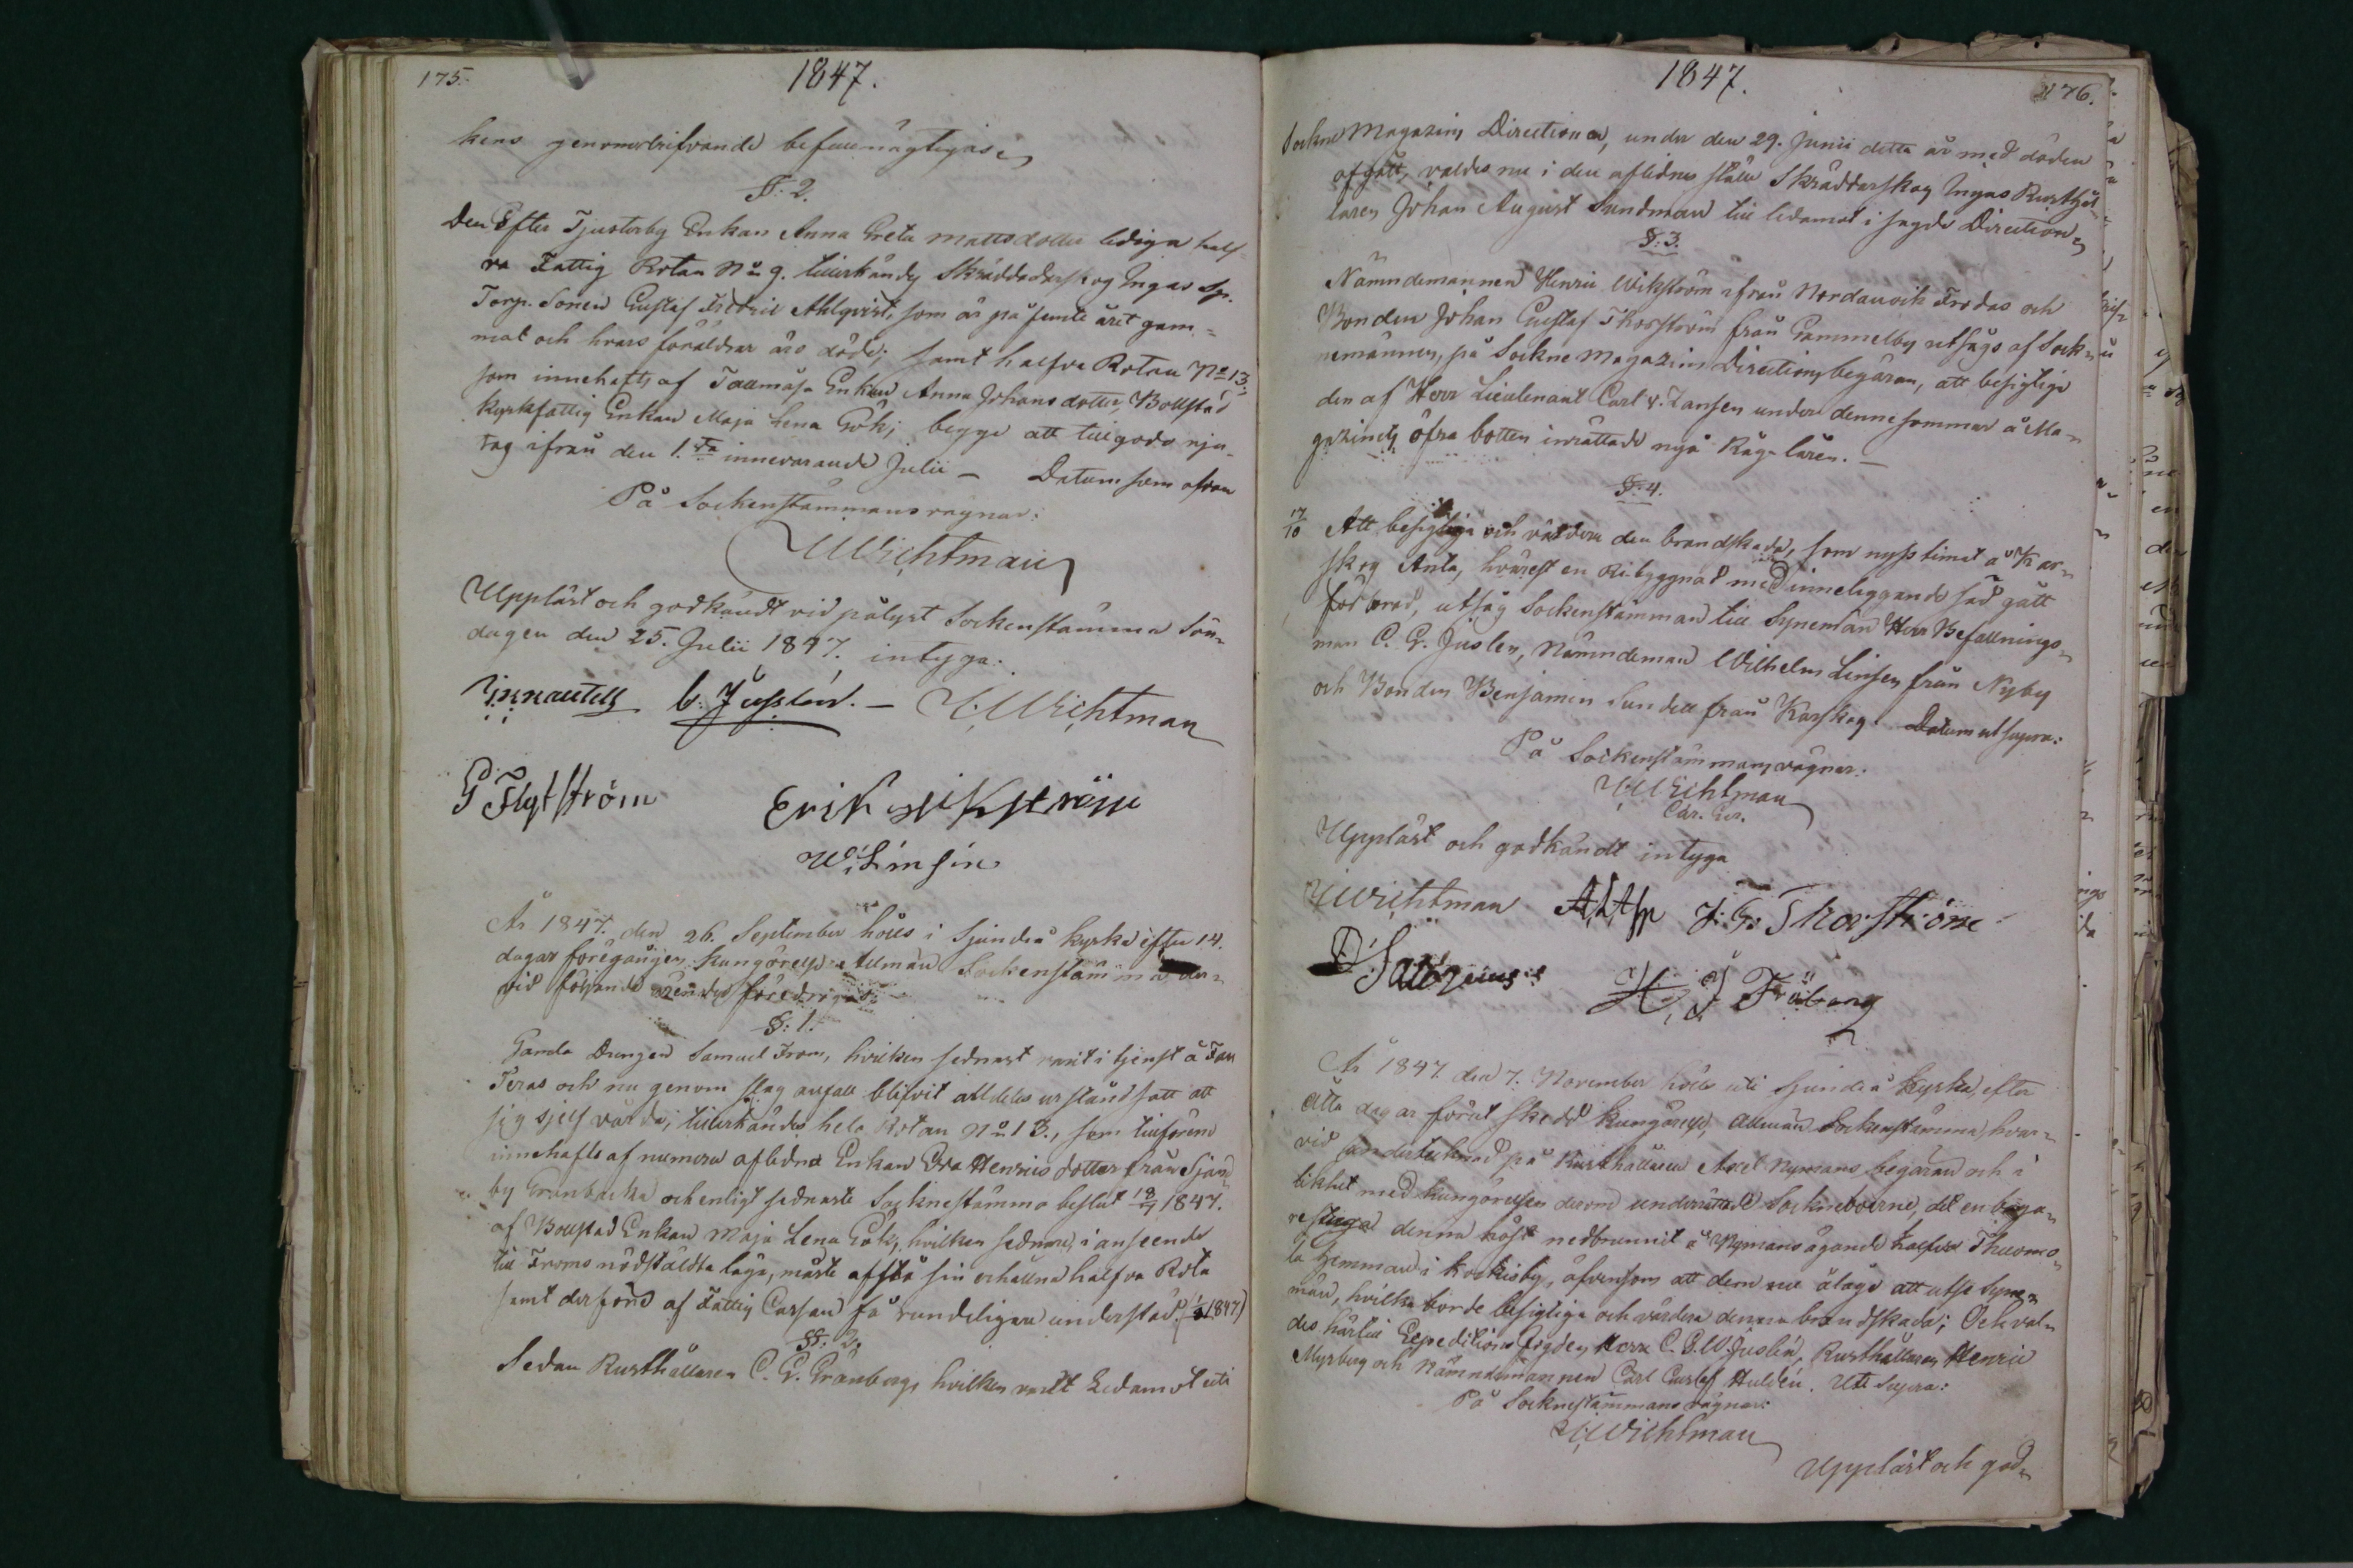 175.
1847.
kens genomdrifvande befullmägtigas.
§: 2.
Den Efter Tjusterby Enkan Anna Greta Mattsdotter lediga half-
va Fattig Rotan No 9. tillerkändes Skräddarskog Ingas Sp.
Torp. Sonen Gustaf Fredric Ahlqvist, som är på femte året gam-
mal och hvars föräldrar äro döde; samt halfva Rotan No 13.
som innehafts af Tallmåsa Enkan Anna Johansdotter, Bollstad
Kyrkfattig Enkan Maja Lena Gök; begge att tillgodo nju-
tas ifrån den 1.sta innevarande Julii — Datum som ofvan
På Sockenstämmans vägnar:
Wichtman
Uppläst och godkändt vid pålyst Sockenstämma Sön-
dagen den 25. Julii 1847. intyga:
C. Juslén. — Wichtman
G Flytström
Erik Wikström
W. Linsén
År 1847. den 26. September hölls i Sjundeå kyrka efter 14.
dagar föregången kungörelse Allmän Sockenstämma der-
vid följande ärender föredrogos:
§: 1.
Gamla Drengen Samuel From, hvilken sednast varit i tjenst å Fan
Teras och nu genom slag anfall blifvit alldeles urståndsatt att
sig sjelf vårda, tillerkändes hela Rotan No 13., som tillförene
innehafts af numera aflidna Enkan Eva Henricsdotter från Sjön-
by Grönbacka och enligt sednaste Socknestämma beslut 18/7 1847.
af Bollstad Enkan Maja Lena Gök, hvilken sednare, i anseende
till Froms nödstäldta läge, måste afstå sin erhållna halfva Rota
samt derföre af Fattig Cassan få vandeligen understöd. 1847)
§: 2.
Sedan Rusthållaren C. G. Granberg, hvilken varit Ledamot uti
1847.
176.
Sockne Magazins Directionen, under den 29. Junii detta år med döden
afgått, valdes nu i den aflidnes ställe Skräddarskog Ingas Rusthål-
laren Johan August Sundman till ledamot i sagde Direction.
§: 3.
Nämndemannen Henric Wikström ifrån Nordanvik Frodas och
Bonden Johan Gustaf Thorström från Gammelby utsågs af Sock-
nemännen, på Sockne Magazins Directions begäran, att besigtiga
den af Herr Lieutenant Carl v. Jansen under denne sommar å Ma-
gazinets öfra botten inrättade nya Råg-låren. —
§: 4.
17/10 Att besigtiga och värdera den brandskada, som nyss timat å Kar-
skog Anta, hvarest en Ribyggnad med inneliggande säd gått
förlorad, utsåg Sockenstämman till Synemän Herr Befallnings-
man C. G. Juslen, Nämndeman Wilhelm Linsen från Nyby
och Bonden Benjamin Sundell från Karskog. Datum ut supra:
På Sockenstämmans vägnar:
Wichtman
Uppläst och godkändt intyga
Wichtman J: G: Thorström
H. J Fröberg
År 1847 den 7. November hölls uti Sjundeå Kyrka, efter
åtta dagar förut skedd kungörelse, allmän Sockenstämma, hvar-
vid undertecknad på Rusthållaren Axel Nymans begäran och i
likhet med kungörelsen derom underrättade Socknebοerne, det en bryga-
restuga denna höst nedbrunnit å Nymans ägande halfva Thuomo-
la hemman i Kockisby, äfvensom att dem nu ålage att utse Syne-
män, hvilka borde besigtiga och värdera denna brandskada; Och val-
des härtill Expeditions fogden Herr C. G. W. Juslén, Rusthållaren Henric
Myrberg och Nämndemannen Carl Gustaf Huldén. Ut Supra:
På Socknestämmans vägnar:
Wichtman
Uppläst och god-